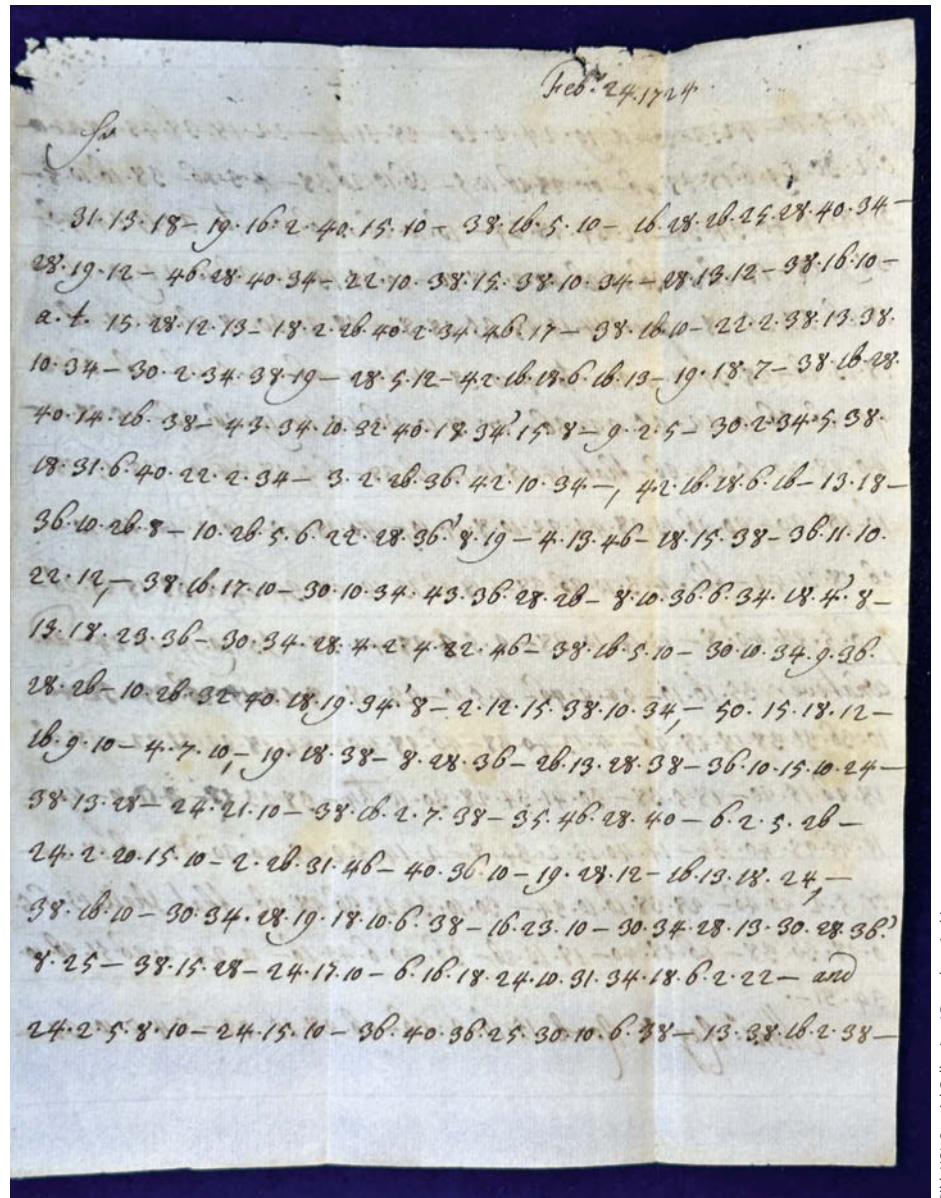 Feb: 24. 1724
Sr
31. 13. 18 – 19. 16. 2. 40. 15. 10 – 38. 16. 5. 10 – 16. 28. 26. 25. 28. 40. 34 –
28. 19. 12 – 46. 28. 40. 34 – 22. 10. 38. 15. 38. 10. 34 – 28. 13. 12 – 38. 16. 10 –
a. t. 15. 28. 12. 13 – 18. 2. 26. 40. 2. 34. 46. 17 – 38. 16. 10 – 22. 2. 38. 13. 38.
10. 34 – 30. 2. 34. 38. 19 – 28. 5. 12 – 42. 16. 18. 6. 16. 13 – 19. 18. 7 – 38. 16. 28.
40. 14. 16. 38 – 43. 34. 10. 32. 40. 18. 34' 15. 8 – 9. 2. 5 – 30. 2. 34. 5. 38.
18. 31. 6. 40. 22. 2. 34 – 3. 2. 26. 36. 42. 10. 34 –, 42. 16. 28. 6. 16 – 13. 18 –
36. 10. 26. 8 – 10. 26. 5. 6. 22. 28. 36' 8. 19 – 4. 13. 46 – 18. 15. 38 – 36. 11. 10.
22. 12, – 38. 16. 17. 10 – 30. 10. 34. 43. 36. 28. 26 – 8. 10. 36. 6. 34. 18. 4' 8 –
13. 18. 23. 36 – 30. 34. 28. 4. 2. 4. 22. 46 – 38. 16. 5. 10 – 30. 10. 34. 9. 36.
28. 26 – 10. 26. 32. 40. 18. 19. 34' 8 – 2. 12. 15. 38. 10. 34, – 50. 15. 18. 12 –
16. 9. 10 – 4. 7. 10, – 19. 18. 38 – 8. 28. 36 – 26. 13. 28. 38 – 36. 10. 15. 10. 24 –
38. 13. 28 – 24. 21. 10 – 38. 16. 2. 7. 38 – 35. 46. 28. 40 – 6. 2. 5. 26 –
24. 2. 20. 15. 10 – 2. 26. 31. 46 – 40. 36. 10 – 19. 28. 12 – 16. 13. 18. 24, –
38. 16. 10 – 30. 34. 28. 19. 18. 10. 6. 38 – 16. 23. 10 – 30. 34. 28. 13. 30. 28. 36'
8. 25 – 38. 15. 28 – 24. 17. 10 – 6. 16. 18. 24. 10. 31. 34. 18. 6. 2. 22 – and
24. 2. 5. 8. 10 – 24. 15. 10 – 36. 40. 36. 25. 30. 10. 6. 38 – 13. 38. 16. 2. 38 –